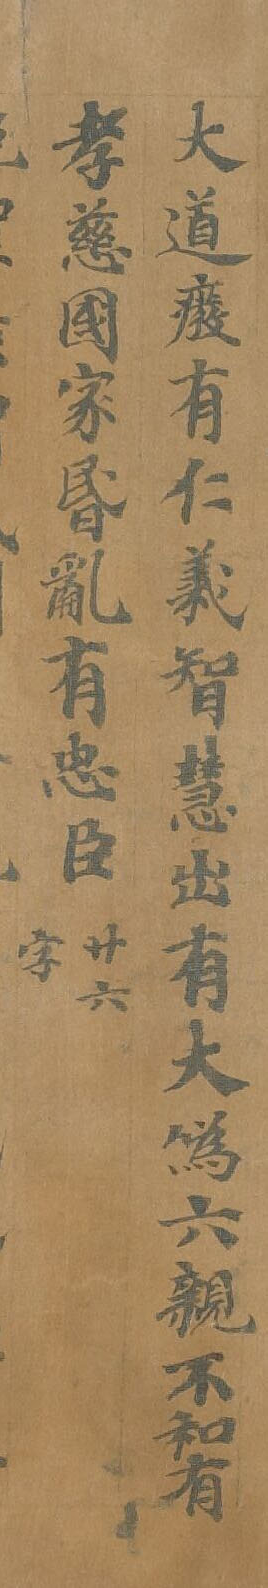 大道癈有仁義智慧出有大僞六親不和有
孝慈國家昬亂有忠臣
廿六
字